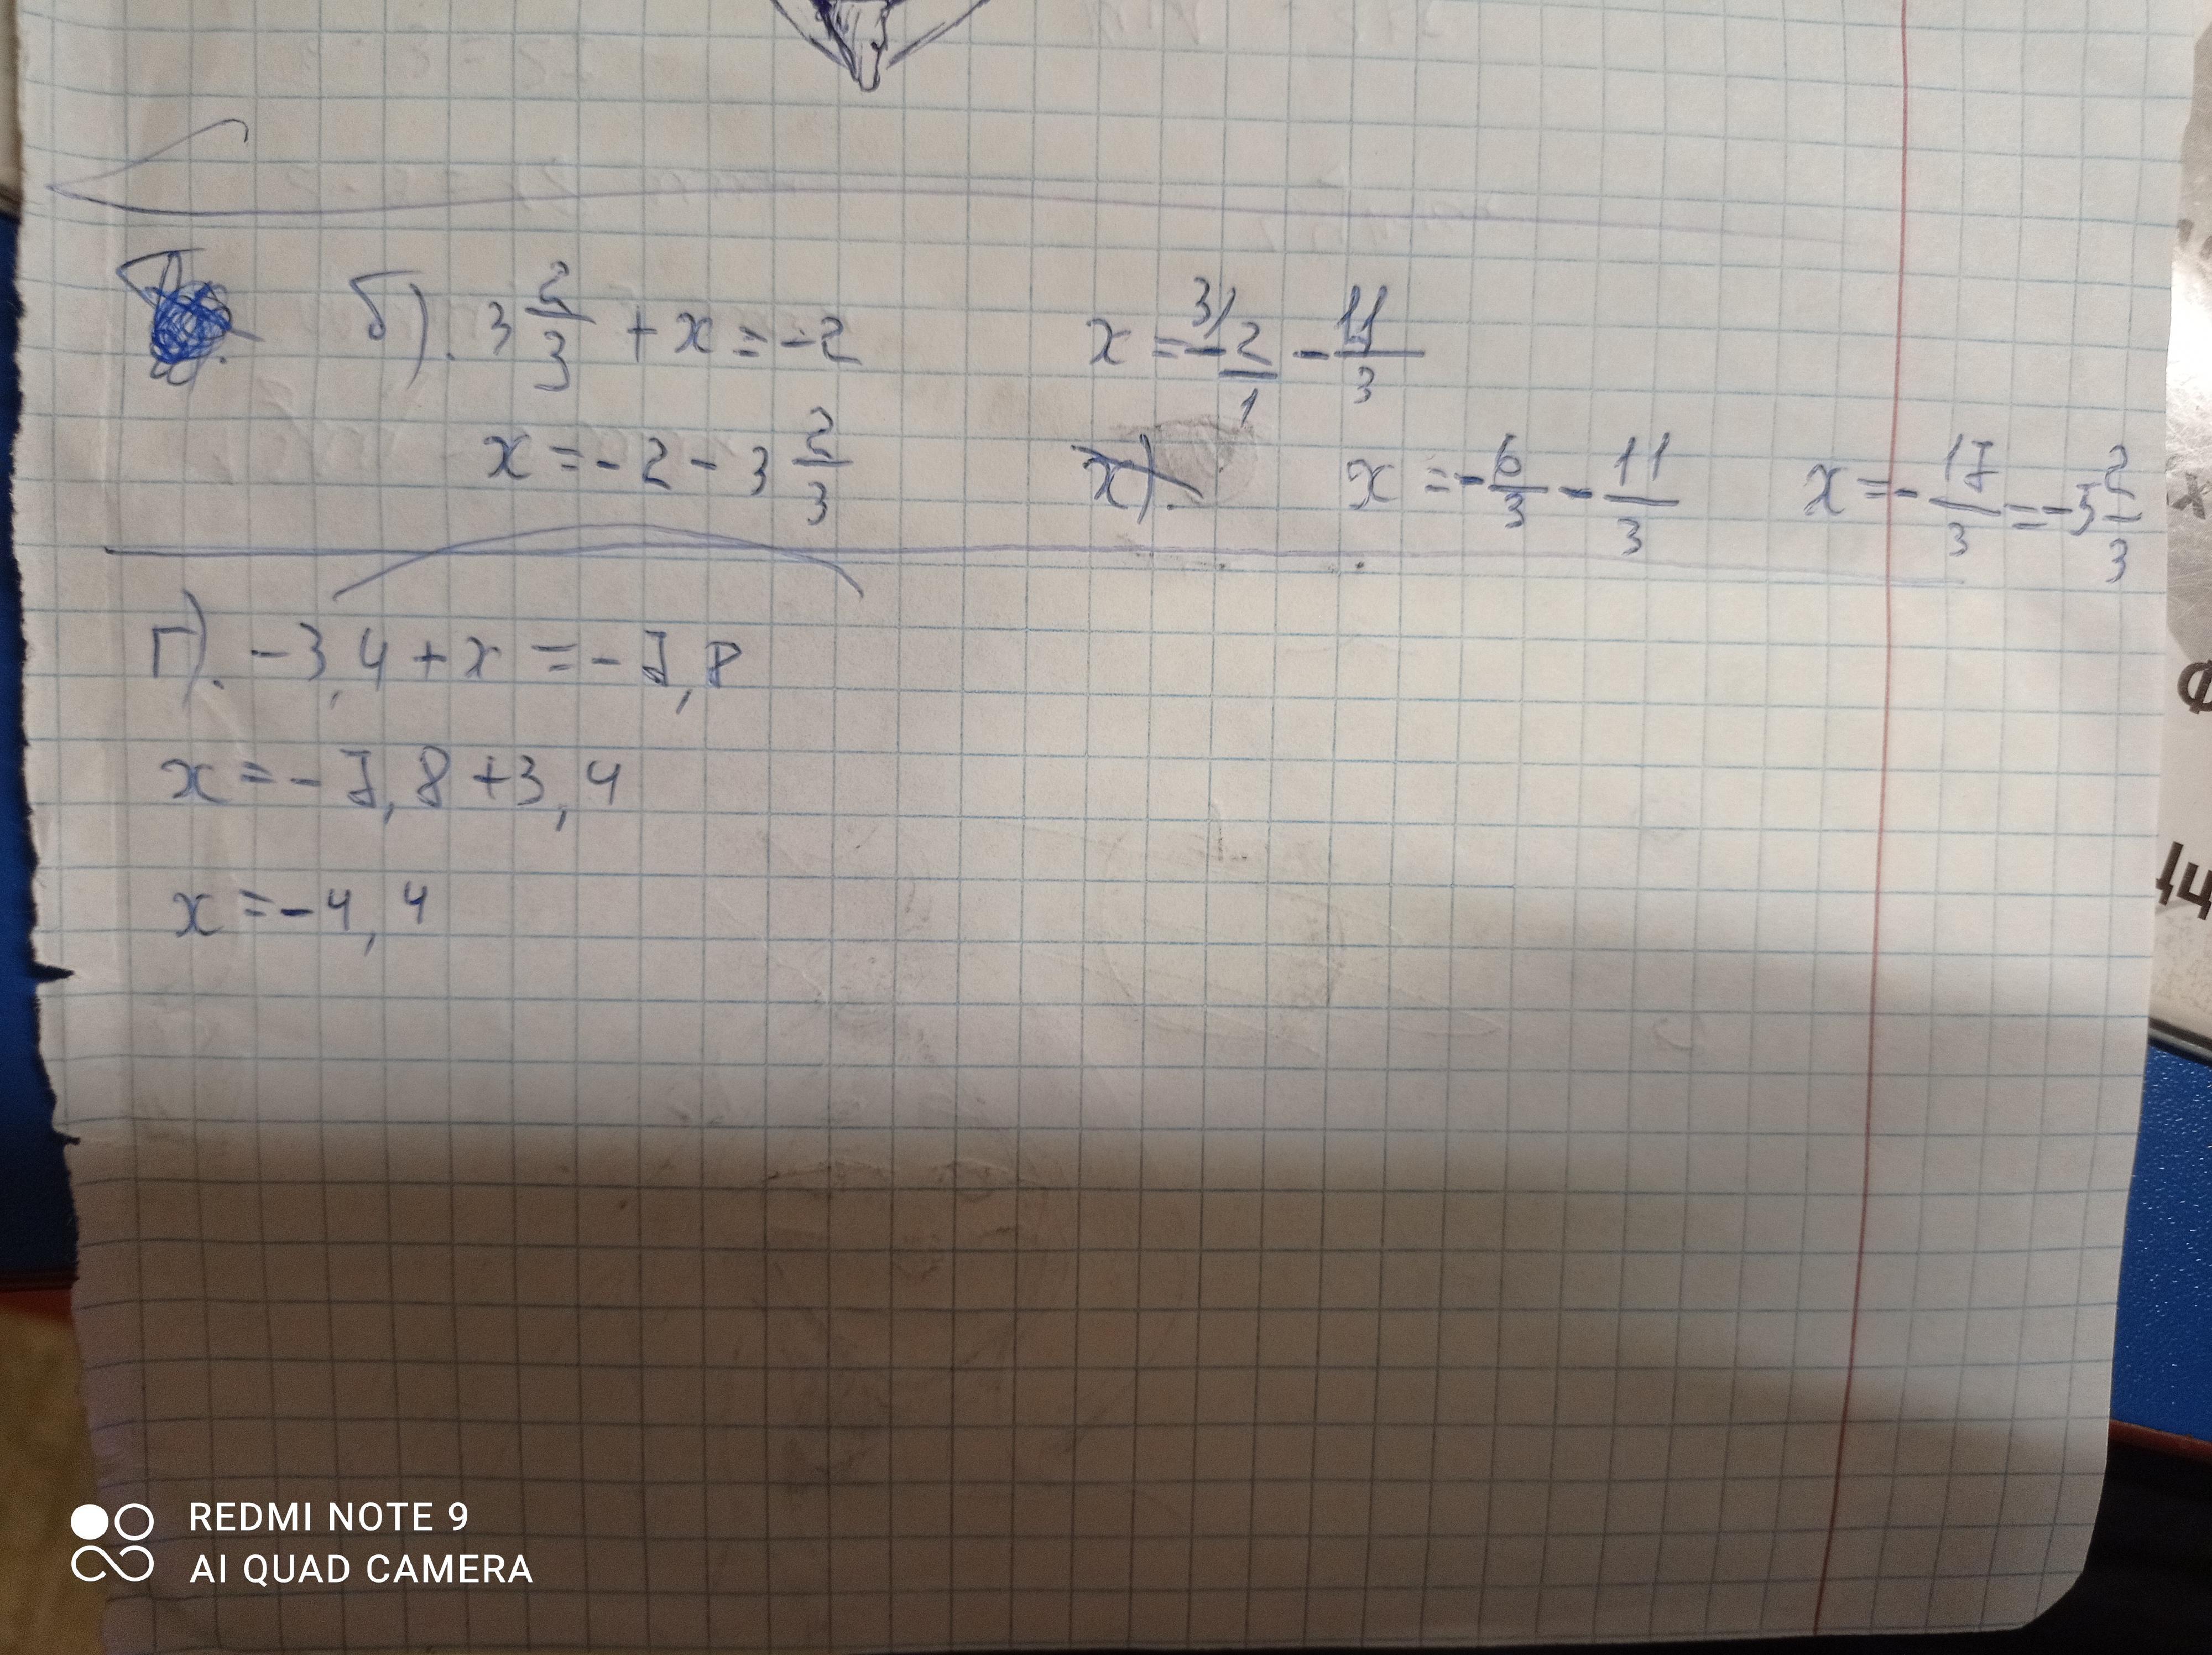 б). 3 2/3 + x = -2
x = -2 - 3 2/3
x = - 2/1 3/ - 11/3
x).
x = - 6/3 - 11/3
x = - 17/3 = -5 2/3
г). -3,4 + x = -7,8
x = -7,8 + 3,4
x = -4,4
х
Ф
REDMI NOTE 9
AI QUAD CAMERA